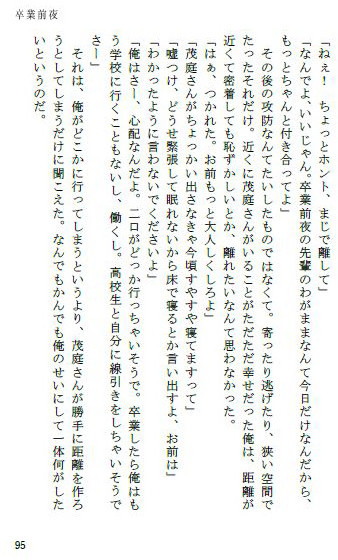 卒業前夜
「ねぇ！　ちょっとホント、まじで離して」
「なんでよ、いいじゃん。卒業前夜の先輩のわがままなんて今日だけなんだから、
もっとちゃんと付き合ってよ」
　その後の攻防なんてたいしたものではなくて。寄ったり逃げたり、狭い空間で
たったそれだけ。近くに茂庭さんがいることがただただ幸せだった俺は、距離が
近くて密着しても恥ずかしいとか、離れたいなんて思わなかった。
「はぁ、つかれた。お前もっと大人しくしろよ」
「茂庭さんがちょっかい出さなきゃ今頃すやすや寝てますって」
「嘘つけ、どうせ緊張して眠れないから床で寝るとか言い出すよ、お前は」
「わかったように言わないでくださいよ」
「俺はさー、心配なんだよ。二口がどっか行っちゃいそうで。卒業したら俺はも
う学校に行くこともないし、働くし。高校生と自分に線引きをしちゃいそうで
さー」
　それは、俺がどこかに行ってしまうというより、茂庭さんが勝手に距離を作ろ
うとしてしまうだけに聞こえた。なんでもかんでも俺のせいにして一体何がした
いというのだ。
95